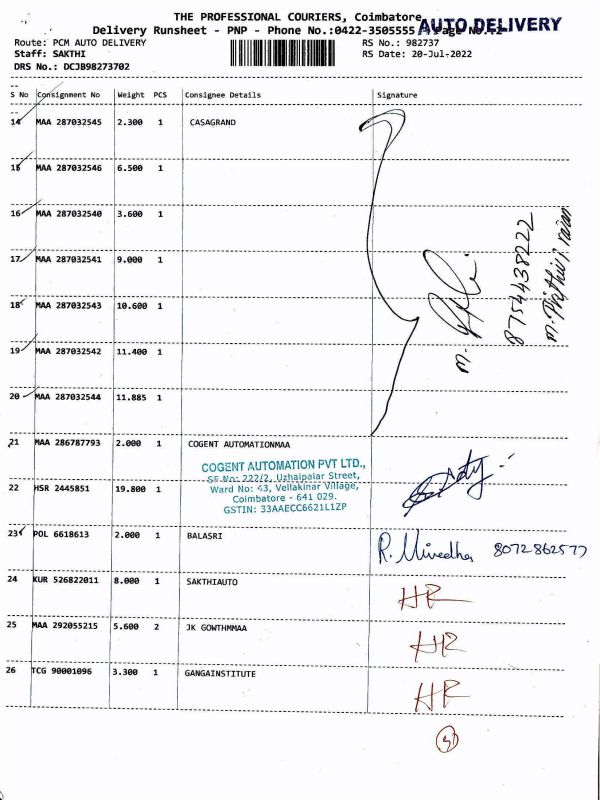 THE PROFESSIONAL COURIERS, Coimbatore
AUTO DELIVERY
Delivery Runsheet - PNP - Phone No.:0422-3505555 / Page No.:2
Route: PCM AUTO DELIVERY RS No.: 982737
Staff: SAKTHI RS Date: 20-Jul-2022
DRS No.: DCJB98273702
S No Consignment No Weight PCS Consignee Details Signature
14 MAA 287032545 2.300 1 CASAGRAND
15 MAA 287032546 6.500 1
16 MAA 287032540 3.600 1
17 MAA 287032541 9.000 1
18 MAA 287032543 10.600 1
19 MAA 287032542 11.400 1
20 MAA 287032544 11.885 1
8754438222
21 MAA 286787793 2.000 1 COGENT AUTOMATIONMAA
COGENT AUTOMATION PVT LTD.,
SF No: 222/2, Uzhaipalar Street,
22 HSR 2445851 19.800 1
Ward No: 43, Vellakinar Village,
Coimbatore - 641 029.
GSTIN: 33AAECC6621L1ZP
23 POL 6618613 2.000 1 BALASRI R. Nivedha 8072862577
24 KUR 526822011 8.000 1 SAKTHIAUTO HR
25 MAA 292055215 5.600 2 JK GOWTHMMAA HR
26 TCG 90001096 3.300 1 GANGAINSTITUTE HR